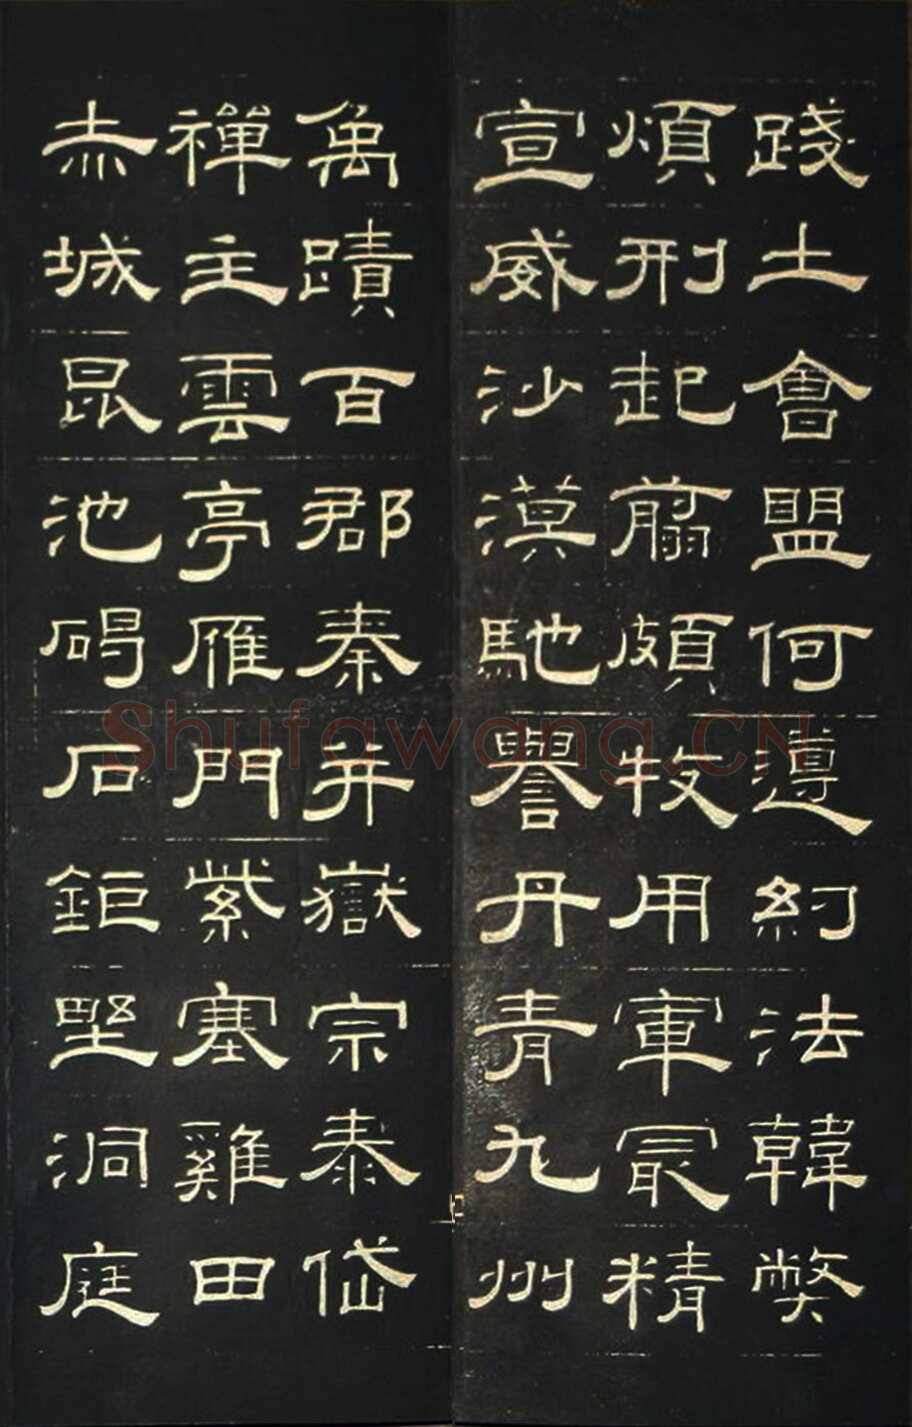 踐土會盟何遵約法韓弊
煩刑起翦頗牧用軍冣精
宣威沙漠馳譽丹青九州
禹蹟百郡秦并嶽宗泰岱
禪主雲亭雁門紫塞雞田
赤城昆池碣石鉅野洞庭
Shufawang.CN